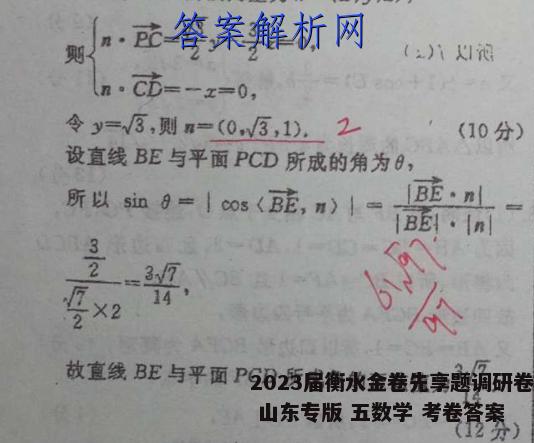 答案解析网
则
n·PC=
n·CD=-x=0,
令 y=√3,则 n=(0,√3,1). 2 (10分)
设直线 BE 与平面 PCD 所成的角为θ,
所以 sin θ=|cos⟨BE,n⟩|=|BE·n|/|BE|·|n|=
(3/2)/(√7/2×2)=3√7/14,
6√97/97
故直线 BE 与平面 PCD
2023届衡水金卷先享题调研卷
山东专版 五数学 考卷答案
(12分)